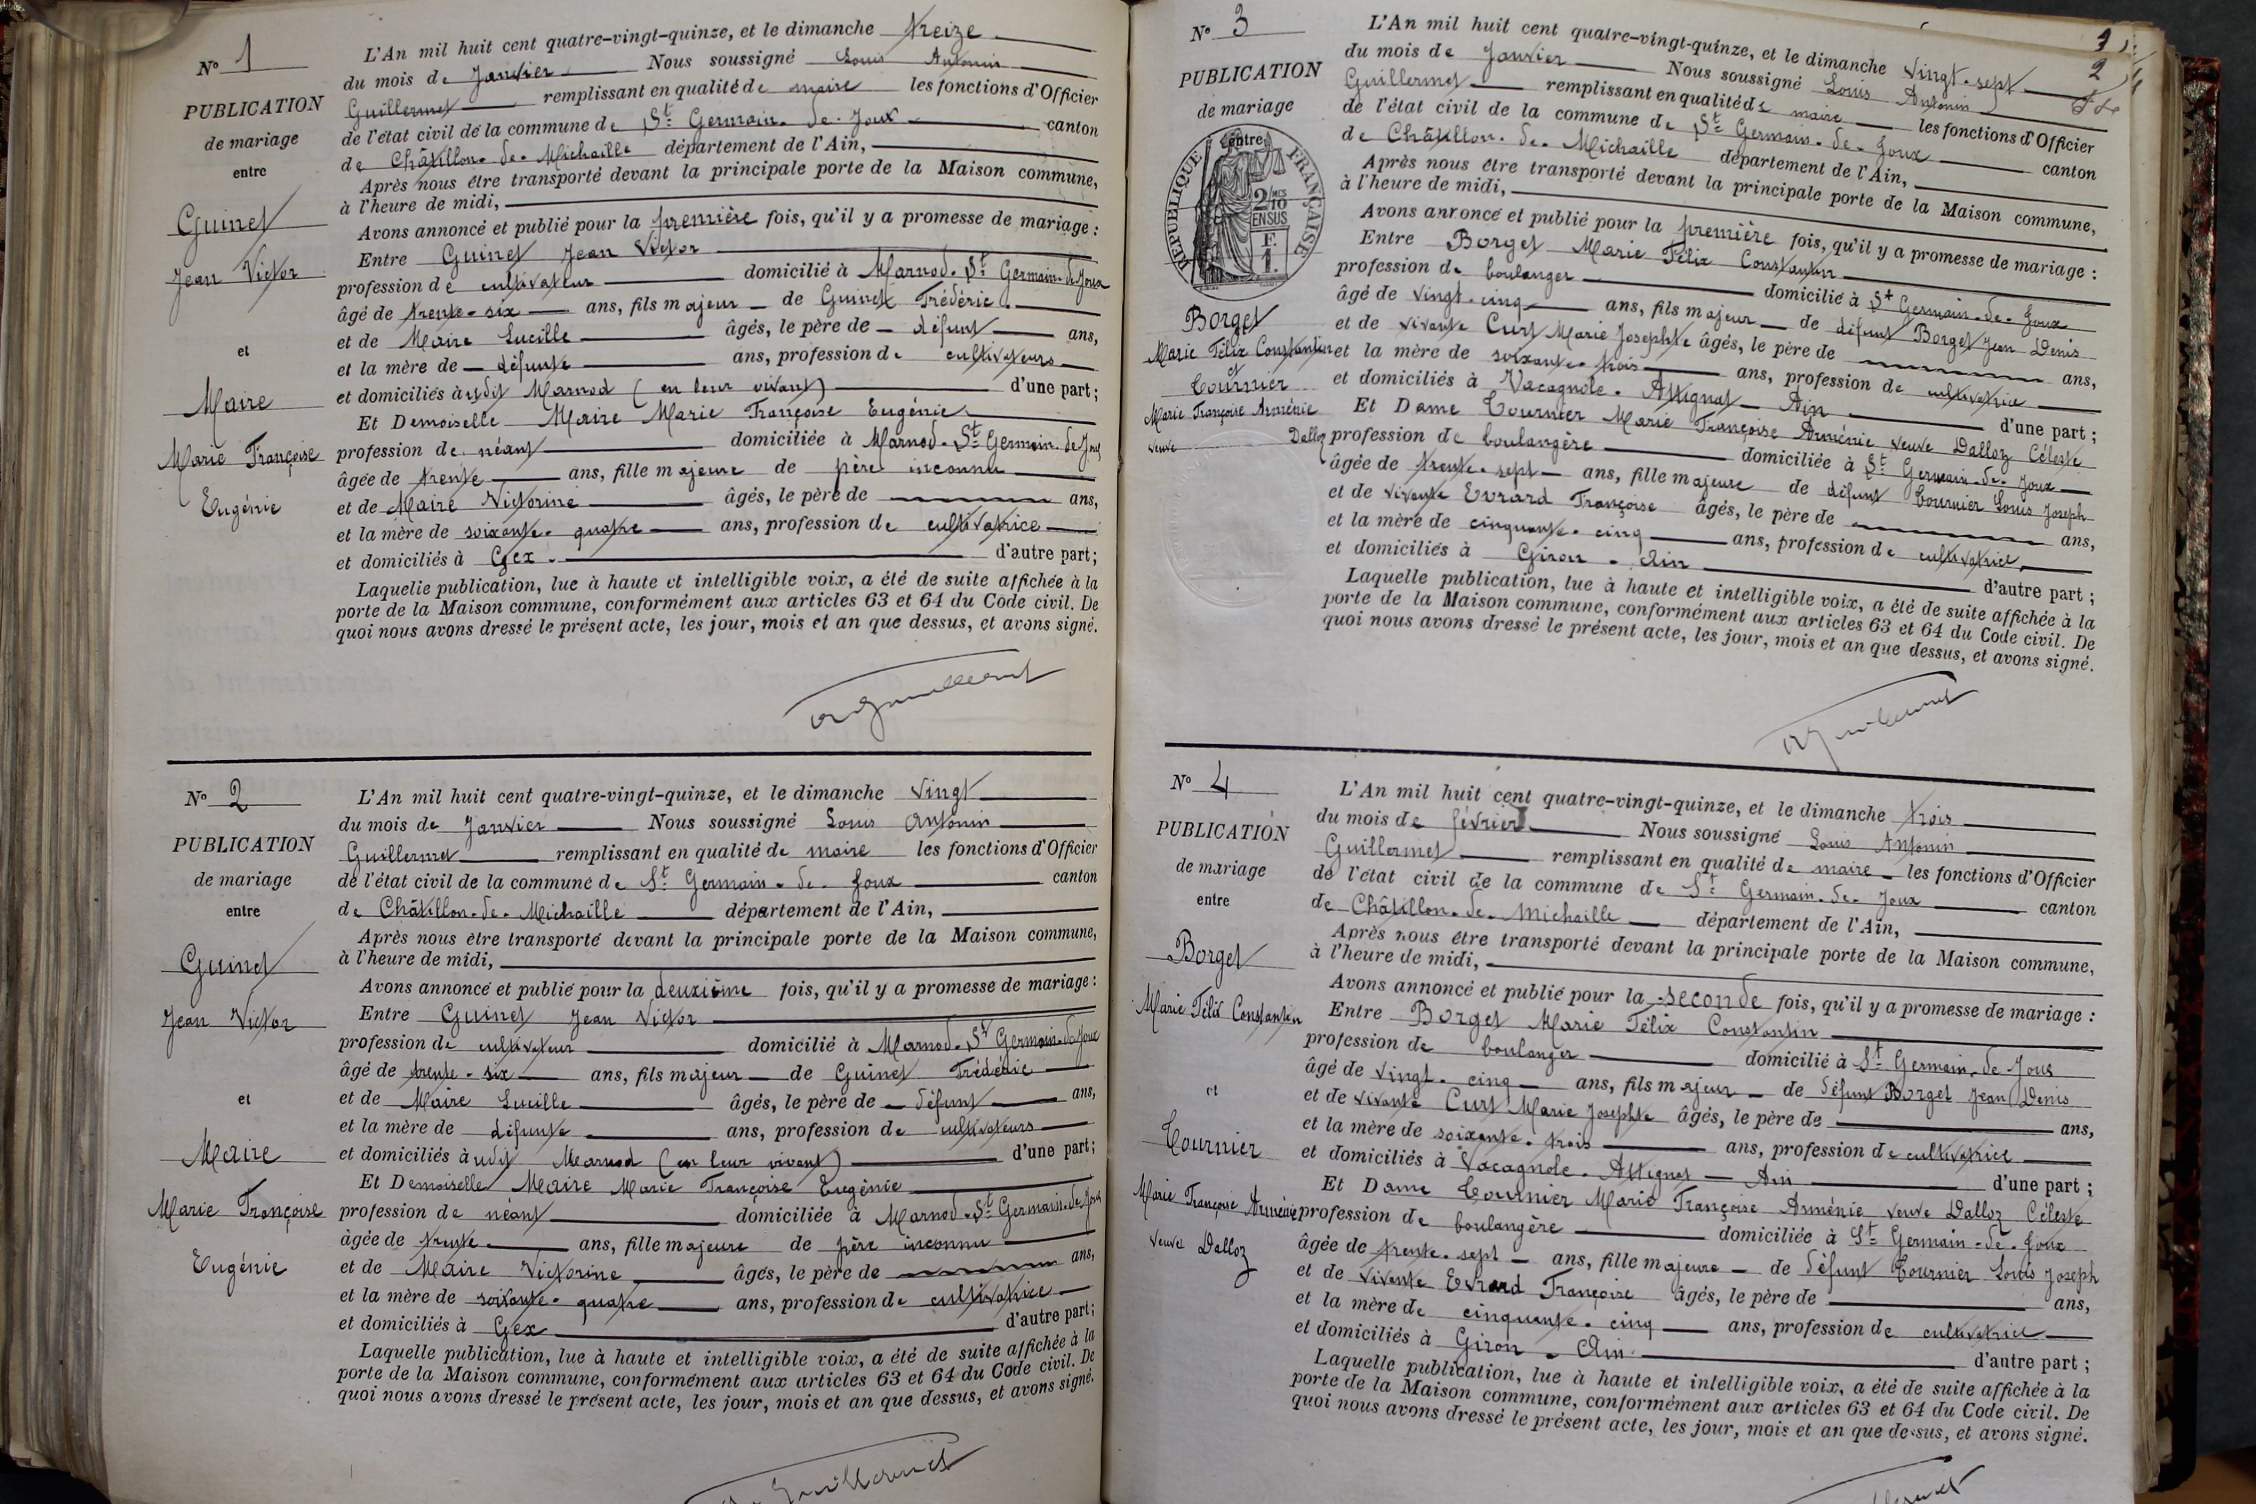 N° 1
PUBLICATION
de mariage
entre
Guinet
Jean Victor
et
Maire
Marie Françoise
Eugénie
L'An mil huit cent quatre-vingt-quinze, et le dimanche treize
du mois de Janvier Nous soussigné Louis Antonin
Guillermet remplissant en qualité de maire les fonctions d'Officier
de l'état civil de la commune de St Germain-de-Joux canton
de Châtillon-de-Michaille département de l'Ain,
Après nous être transporté devant la principale porte de la Maison commune,
à l'heure de midi,
Avons annoncé et publié pour la première fois, qu'il y a promesse de mariage :
Entre Guinet Jean Victor
profession de cultivateur domicilié à Marnod-St Germain-de-Joux
âgé de trente-six ans, fils majeur de Guinet Frédéric
et de Maire Lucille âgés, le père de défunt ans,
et la mère de défunte ans, profession de cultivateurs
et domiciliés à udit Marnod (en leur vivant) d'une part;
Et Demoiselle Maire Marie Françoise Eugénie
profession de néant domiciliée à Marnod-St Germain-de-Joux
âgée de trente ans, fille majeure de père inconnu
et de Maire Victorine âgés, le père de ans,
et la mère de soixante-quatre ans, profession de cultivatrice
et domiciliés à Gex d'autre part;
Laquelle publication, lue à haute et intelligible voix, a été de suite affichée à la
porte de la Maison commune, conformément aux articles 63 et 64 du Code civil. De
quoi nous avons dressé le présent acte, les jour, mois et an que dessus, et avons signé.
Guillermet
N° 2
PUBLICATION
de mariage
entre
Guinet
Jean Victor
et
Maire
Marie Françoise
Eugénie
L'An mil huit cent quatre-vingt-quinze, et le dimanche vingt
du mois de Janvier Nous soussigné Louis Antonin
Guillermet remplissant en qualité de maire les fonctions d'Officier
de l'état civil de la commune de St Germain-de-Joux canton
de Châtillon-de-Michaille département de l'Ain,
Après nous être transporté devant la principale porte de la Maison commune,
à l'heure de midi,
Avons annoncé et publié pour la deuxième fois, qu'il y a promesse de mariage :
Entre Guinet Jean Victor
profession de cultivateur domicilié à Marnod-St Germain-de-Joux
âgé de trente-six ans, fils majeur de Guinet Frédéric
et de Maire Lucille âgés, le père de défunt ans,
et la mère de défunte ans, profession de cultivateurs
et domiciliés à udit Marnod (en leur vivant) d'une part;
Et Demoiselle Maire Marie Françoise Eugénie
profession de néant domiciliée à Marnod-St Germain-de-Joux
âgée de trente ans, fille majeure de père inconnu
et de Maire Victorine âgés, le père de ans,
et la mère de soixante-quatre ans, profession de cultivatrice
et domiciliés à Gex d'autre part;
Laquelle publication, lue à haute et intelligible voix, a été de suite affichée à la
porte de la Maison commune, conformément aux articles 63 et 64 du Code civil. De
quoi nous avons dressé le présent acte, les jour, mois et an que dessus, et avons signé.
Guillermet
2
N° 3
PUBLICATION
de mariage
entre
RÉPUBLIQUE FRANÇAISE
2/10 MES
EN SUS
F.
1.
Borget
Marie Félix Constantin
et
Tournier
Marie Françoise Arménie
veuve Dalloz
L'An mil huit cent quatre-vingt-quinze, et le dimanche vingt-sept
du mois de Janvier Nous soussigné Louis Antonin
Guillermet remplissant en qualité de maire les fonctions d'Officier
de l'état civil de la commune de St Germain-de-Joux canton
de Châtillon-de-Michaille département de l'Ain,
Après nous être transporté devant la principale porte de la Maison commune,
à l'heure de midi,
Avons annoncé et publié pour la première fois, qu'il y a promesse de mariage :
Entre Borget Marie Félix Constantin
profession de boulanger domicilié à St Germain-de-Joux
âgé de vingt-cinq ans, fils majeur de défunt Borget Jean Denis
et de vivante Curt Marie Josephte âgés, le père de ans,
et la mère de soixante-trois ans, profession de cultivatrice
et domiciliés à Vacagnole-Attignat-Ain d'une part;
Et Dame Tournier Marie Françoise Arménie veuve Dalloz Céleste
profession de boulangère domiciliée à St Germain-de-Joux
âgée de trente-sept ans, fille majeure de défunt Tournier Louis Joseph
et de vivante Evrard Françoise âgés, le père de ans,
et la mère de cinquante-cinq ans, profession de cultivatrice
et domiciliés à Giron-Ain d'autre part;
Laquelle publication, lue à haute et intelligible voix, a été de suite affichée à la
porte de la Maison commune, conformément aux articles 63 et 64 du Code civil. De
quoi nous avons dressé le présent acte, les jour, mois et an que dessus, et avons signé.
Guillermet
N° 4
PUBLICATION
de mariage
entre
Borget
Marie Félix Constantin
et
Tournier
Marie Françoise Arménie
veuve Dalloz
L'An mil huit cent quatre-vingt-quinze, et le dimanche trois
du mois de février Nous soussigné Louis Antonin
Guillermet remplissant en qualité de maire les fonctions d'Officier
de l'état civil de la commune de St Germain-de-Joux canton
de Châtillon-de-Michaille département de l'Ain,
Après nous être transporté devant la principale porte de la Maison commune,
à l'heure de midi,
Avons annoncé et publié pour la seconde fois, qu'il y a promesse de mariage :
Entre Borget Marie Félix Constantin
profession de boulanger domicilié à St Germain-de-Joux
âgé de vingt-cinq ans, fils majeur de défunt Borget Jean Denis
et de vivante Curt Marie Josephte âgés, le père de ans,
et la mère de soixante-trois ans, profession de cultivatrice
et domiciliés à Vacagnole-Attignat-Ain d'une part;
Et Dame Tournier Marie Françoise Arménie veuve Dalloz Céleste
profession de boulangère domiciliée à St Germain-de-Joux
âgée de trente-sept ans, fille majeure de défunt Tournier Louis Joseph
et de vivante Evrard Françoise âgés, le père de ans,
et la mère de cinquante-cinq ans, profession de cultivatrice
et domiciliés à Giron-Ain d'autre part;
Laquelle publication, lue à haute et intelligible voix, a été de suite affichée à la
porte de la Maison commune, conformément aux articles 63 et 64 du Code civil. De
quoi nous avons dressé le présent acte, les jour, mois et an que dessus, et avons signé.